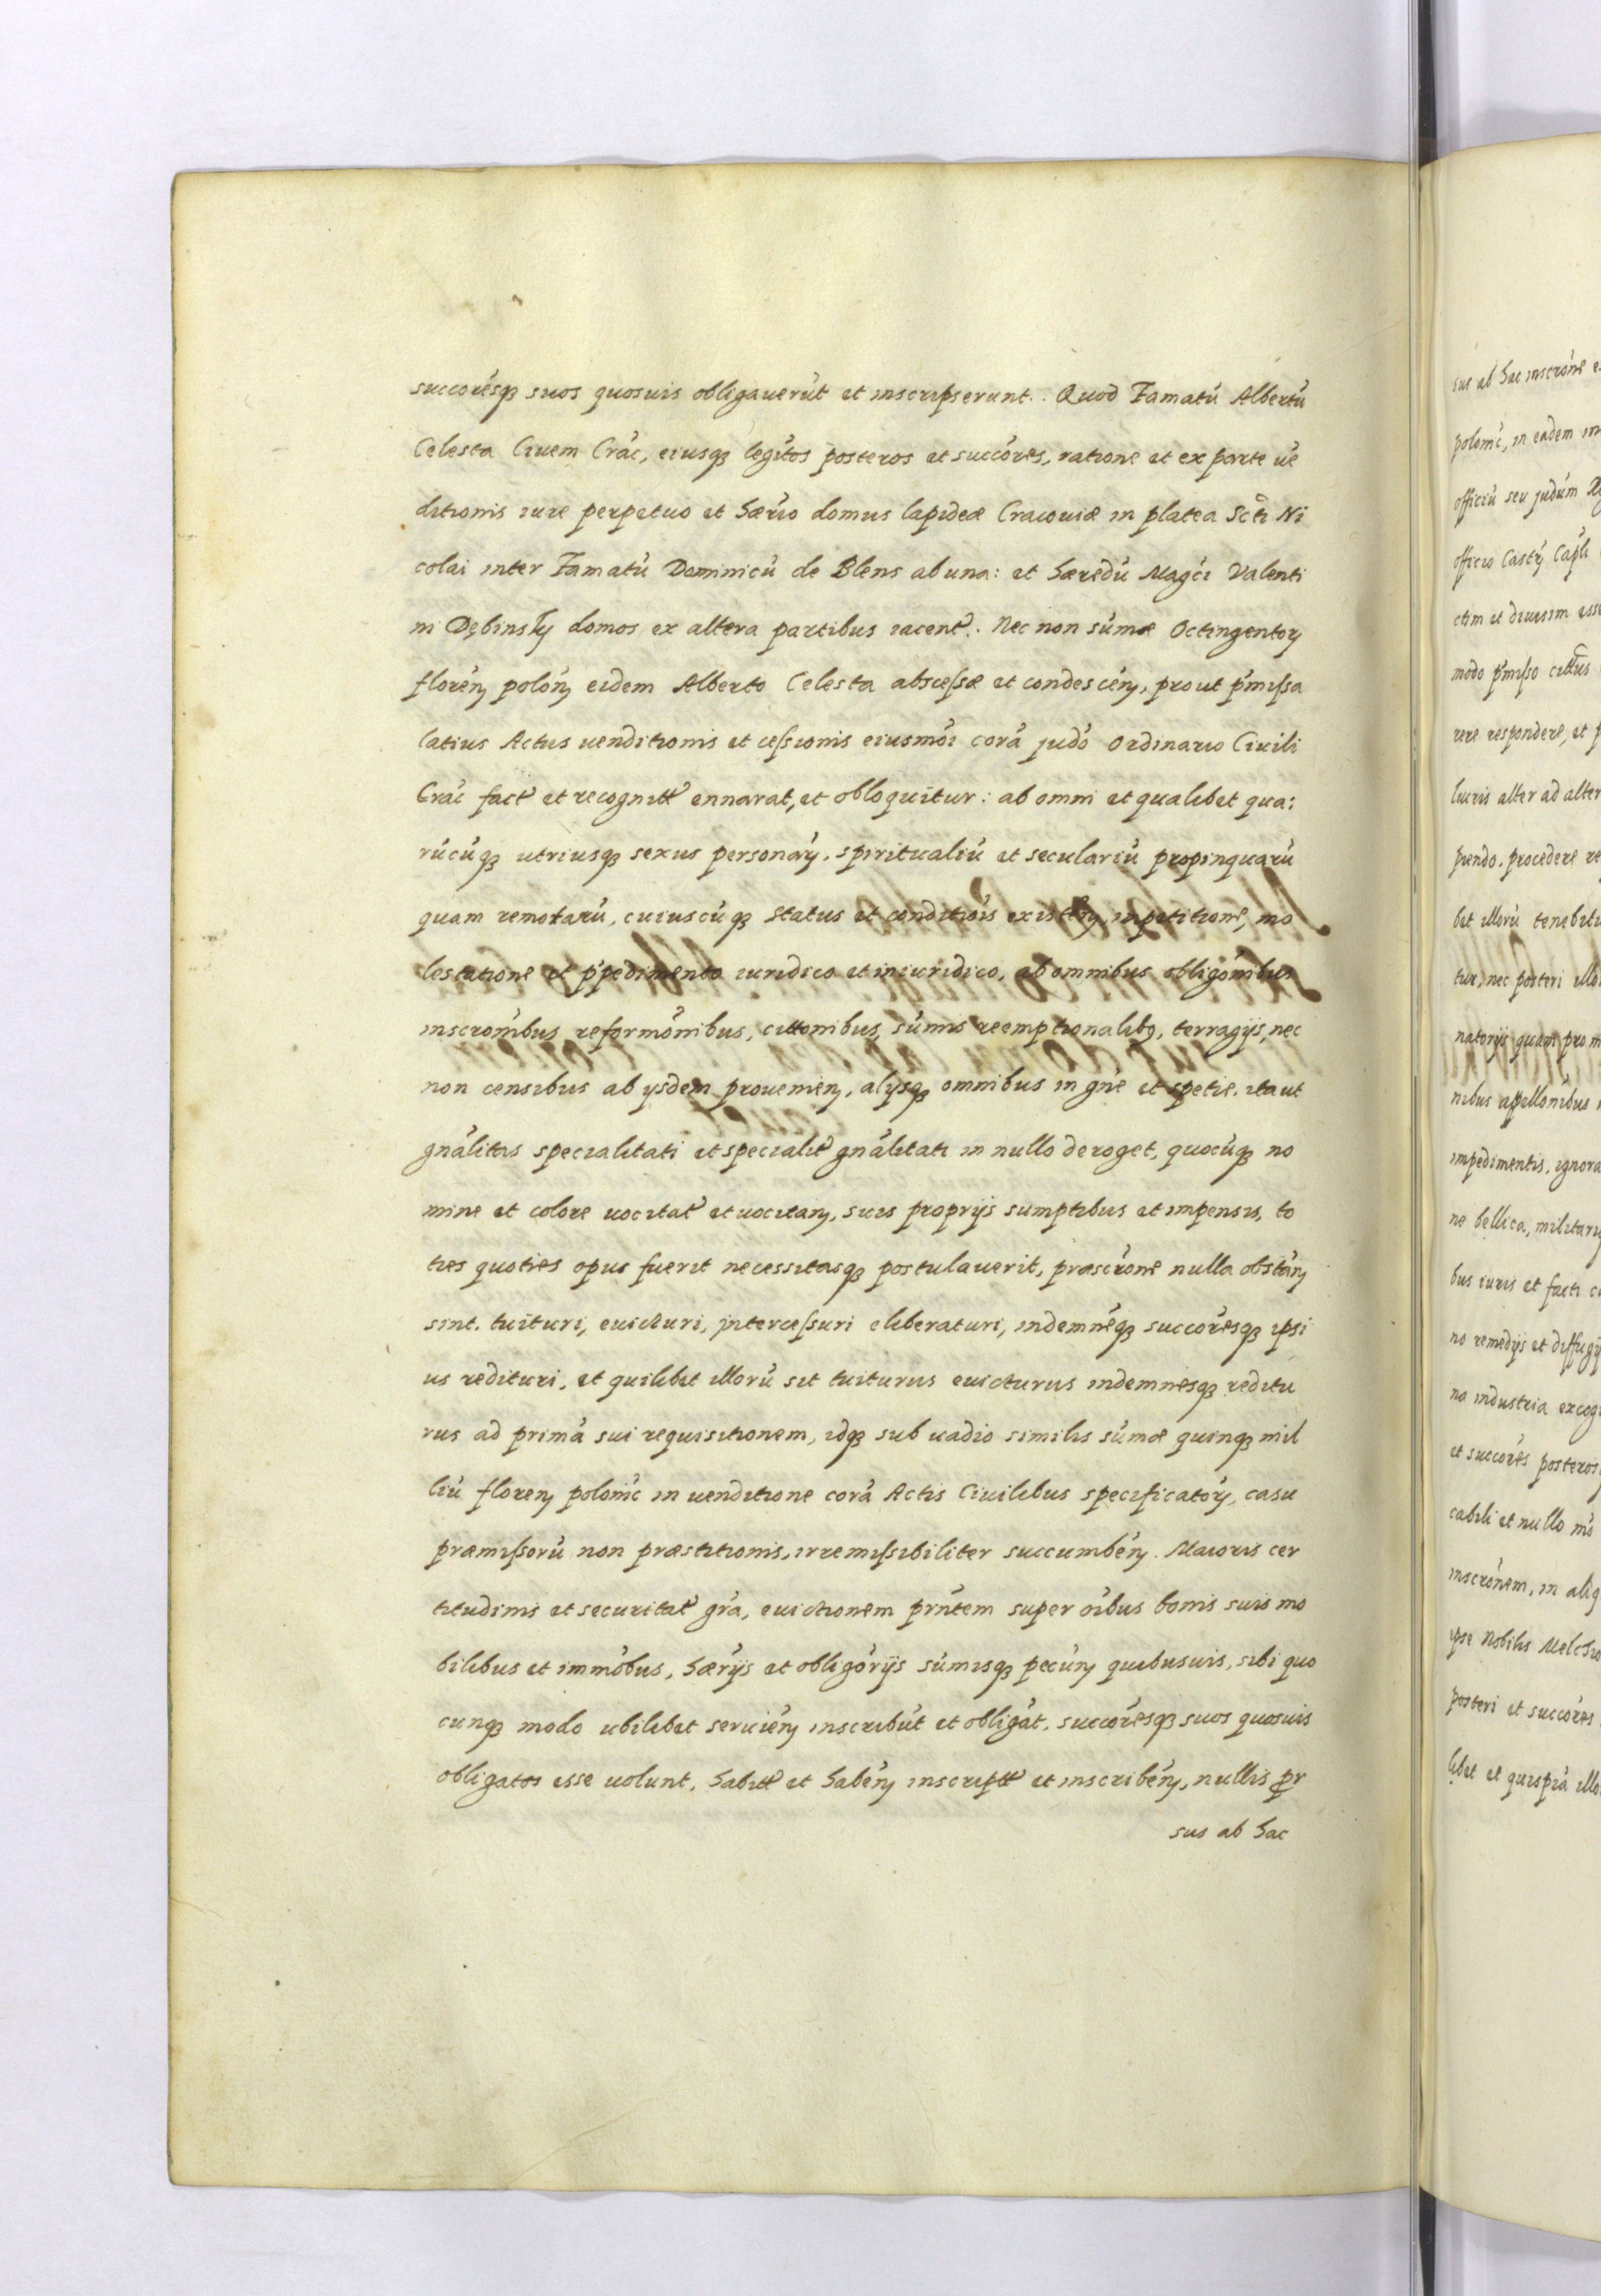 succorésqꝫ suos quosuis obligauerút et inscripserunt. Quod Famatú Albertú
Celesta Ciuem Crác, eiusqꝫ legítos posteros et succóres, ratione et ex parte ué
ditionis iure perpetuo et hærío domus lapideæ Cracouiæ in platea Scti Ni
colai inter Famatú Dominicú de Blens ab una: et hæredú Magci Valenti
ni Dębinsky domos ex altera partibus iacent. Nec non súmæ Octingentoꝝ
floréꝝ polóꝝ eidem Alberto Celesta abscessæ et condescéꝝ, prout pmissa
latius Actus uenditionis et cessionis eiusmói corá judó Ordinario Ciuili
Crác fact et recognitt ennarat, et obloquitur: ab omni et qualibet qua:
rúcúqꝫ utriusqꝫ sexus personáꝝ. spiritualiú et seculariú propinquarú
quam remotarú, cuiuscúqꝫ status et conditiois existéꝝ, inpetitioné, mo
lestatione et ppedimento iuridico et iniuridico, ab omnibus obligónibus
inscronibus reformónibus, cittonibus, súmis reemptionalibꝫ, terragijs, nec
non censibus ab ysdem prouenieꝝ, alysqꝫ omnibus in gne et spetie. ita ut
gnálitas specialitati et specialit gnálitati in nullo deroget, quocúqꝫ no
mine et colore uocitat et uocitaꝝ, suis proprijs sumptibus et impensis, to
ties quoties opus fuerit necessitasqꝫ postulauerit, præscróne nulla obstáꝝ
sint. tuituri, euicturi, intercessuri eliberaturi, indemnéqꝫ succorésqꝫ ipsi
us redituri, et quilibet illorú sit tuiturus euicturus indemnesqꝫ reditu
rus ad primá sui requisitionem, idqꝫ sub uadio similis súmæ quinqꝫ mil
liú floreꝝ polonic in uenditione corá Actis Ciuilibus specificatóꝝ, casu
præmissorú non præstitionis, irremissibiliter succumbéꝝ. Maioris cer
titudinis et securitat grá, euictionem prntem super oibus bonis suis mo
bilibus et immóbus, hærijs et obligórijs súmisqꝫ pecúꝝ quibusuis, sibi quo
cunqꝫ modo ubilibet seruiéꝝ inscribút et obligát, succorésqꝫ suos quosuis
obligatos esse uolunt, habitt et habéꝝ inscriptt et inscribéꝝ, nullis pr
sus ab hac
sus ab hac inscróne
polonic, in eadem
officiú seu judúm
officio Castꝝ
ctim et diuisim
modo pmisso
rere respondere, et
luris alter ad alter
piendo. procedere re
bet illorú tenebit
tur, nec posteri illo
natorijs quam
nibus appellonibus
impedimentis, ignora
ne bellica, militari
bus iuris et facti
no remedijs et diffugij
na industria excogi
et succóres posteros
cabili et nullo mó
inscrónem, in aliq
ipse Nobilis Melchio
posteri et succóres
libet et quispiá illo